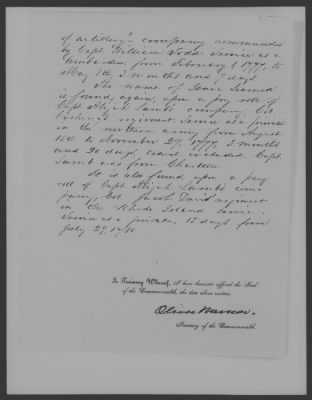 of artillery company commanded
by Capt. William Todd. Service as a
Bombardier from February 1, 1777, to
May 8th, 3 months and 7 days.
The name of Isaac Learned
is found, again, upon a pay roll of
Capt. Abijah Lamb's company, Col.
Cushing's regiment. Service as private
in the northern army from August
15th to November 29, 1777, 3 months
and 20 days, travel included. Capt
Lamb was from Charlton.
It is also found upon a pay
roll of Capt. Abijah Lamb's com
pany, Col. Jacob Davis' regiment
in the Rhode Island service.
Service as a private, 15 days from
July 29,
In Testimony Whereof, I have hereunto affixed the Seal
of the Commonwealth, the date above written.
Oliver Warner.
Secretary of the Commonwealth.